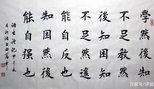 學然後知
不足教然
後知困知
不足然後
能自反也
知困然後
能自强也